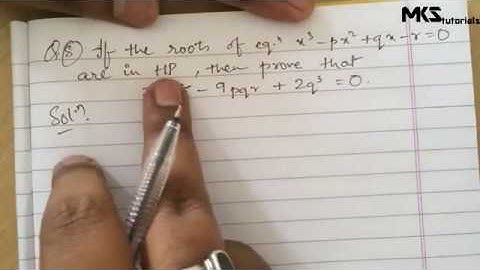 MKS
tutorials
Q.8 If the roots of eq.ⁿ x³-px²+qx-r=0
are in HP, then prove that
- 9pqr + 2q³ = 0.
Solⁿ.